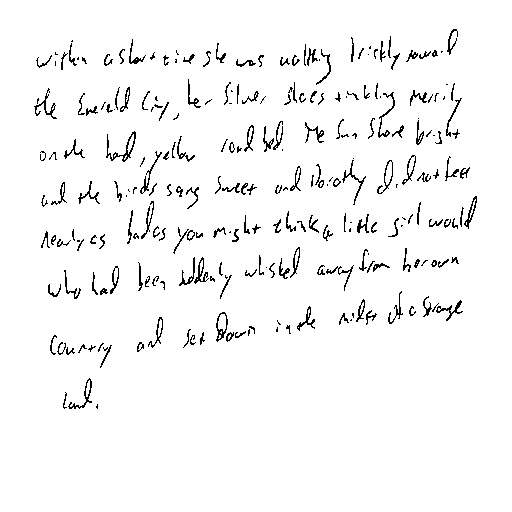 within a short time she was walking briskly toward
the Emerald City, her Silver Shoes tinkling merrily
on the hard, yellow roadbed. The Sun Shone bright
and the birds sang Sweet and Dorothy did not feel
nearly as bad as you might think a little girl would
who had been suddenly whisked away from her own
Country and set Down in the midst of a Strange
land.